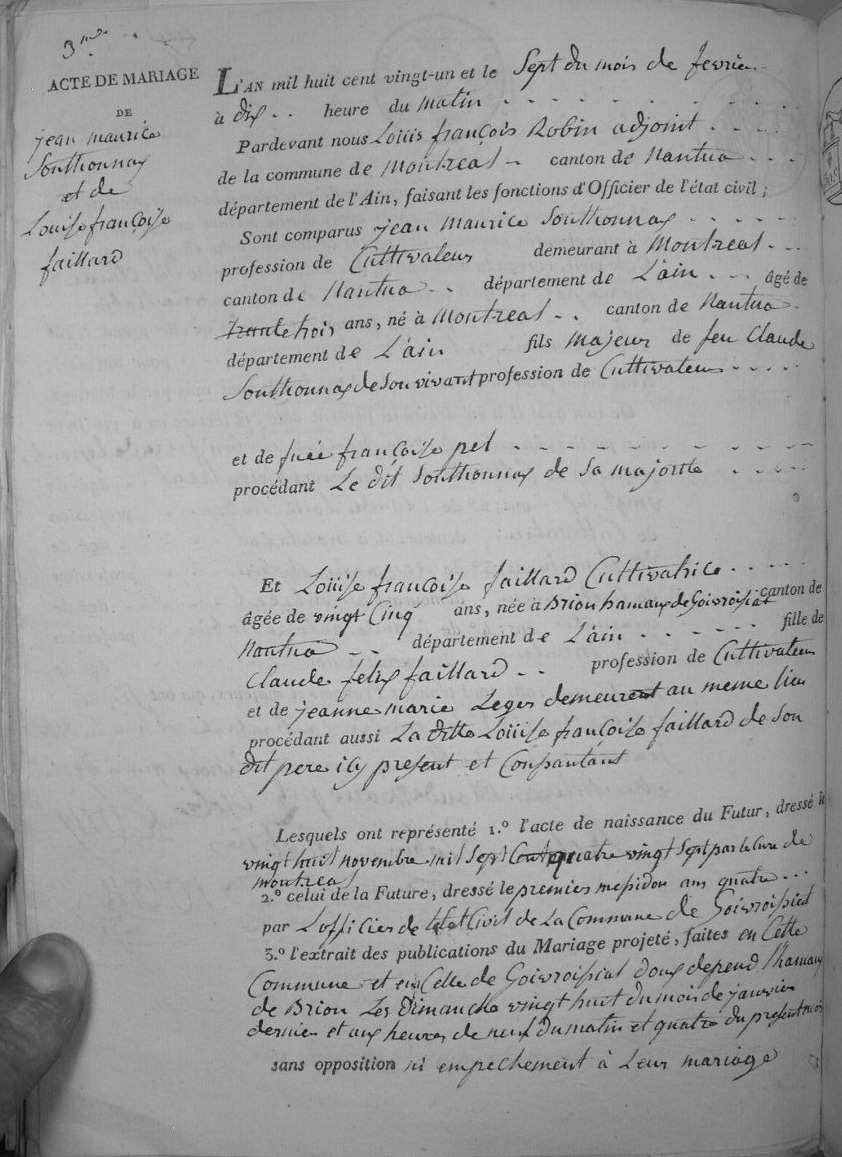 3me
ACTE DE MARIAGE
DE
jean maurice
Southonnax
et de
Louise françoise
faillard
L'AN mil huit cent vingt-un et le Sept du mois de fevrier
à dix .. heure du matin
Pardevant nous Louis françois Robin adjoint
de la commune de Montreal canton de Nantua
département de l'Ain, faisant les fonctions d'Officier de l'état civil ;
Sont comparus jean maurice Southonnax
profession de Cultivateur demeurant à Montreal
canton de Nantua département de L'ain âgé de
trente trois ans, né à Montreal canton de Nantua
département de L'ain fils majeur de feu Claude
Southonnax de son vivant profession de Cultivateur
et de françoise pel
procédant Le dit Southonnax de sa majorité
Et Louise françoise faillard Cultivatrice
âgée de vingt Cinq ans, née à Brion hamaux de Goivroisiat canton de
Nantua département de L'ain fille de
Claude felix faillard profession de Cultivateur
et de jeanne marie Leger demeurent au meme lieu
procédant aussi La ditte Louise françoise faillard de son
dit pere icy present et Consantant
Lesquels ont représenté 1.º l'acte de naissance du Futur, dressé le
vingt huit novembre mil sept Cent quatre vingt sept par le Cure de
montreal
2.º celui de la Future, dressé le premier mesidor ans quatre
par L'officier de Letat Civil de La Commune de Goivroisiat
3.º l'extrait des publications du Mariage projeté, faites en Cette
Commune et en Celle de Goivroisiat doux depend l'hamaux
de Brion Les Dimanche vingt huit du mois de janvier
dernier et aux heures de neuf du matin et quatre du present mois
sans opposition ni empechement à Leur mariage